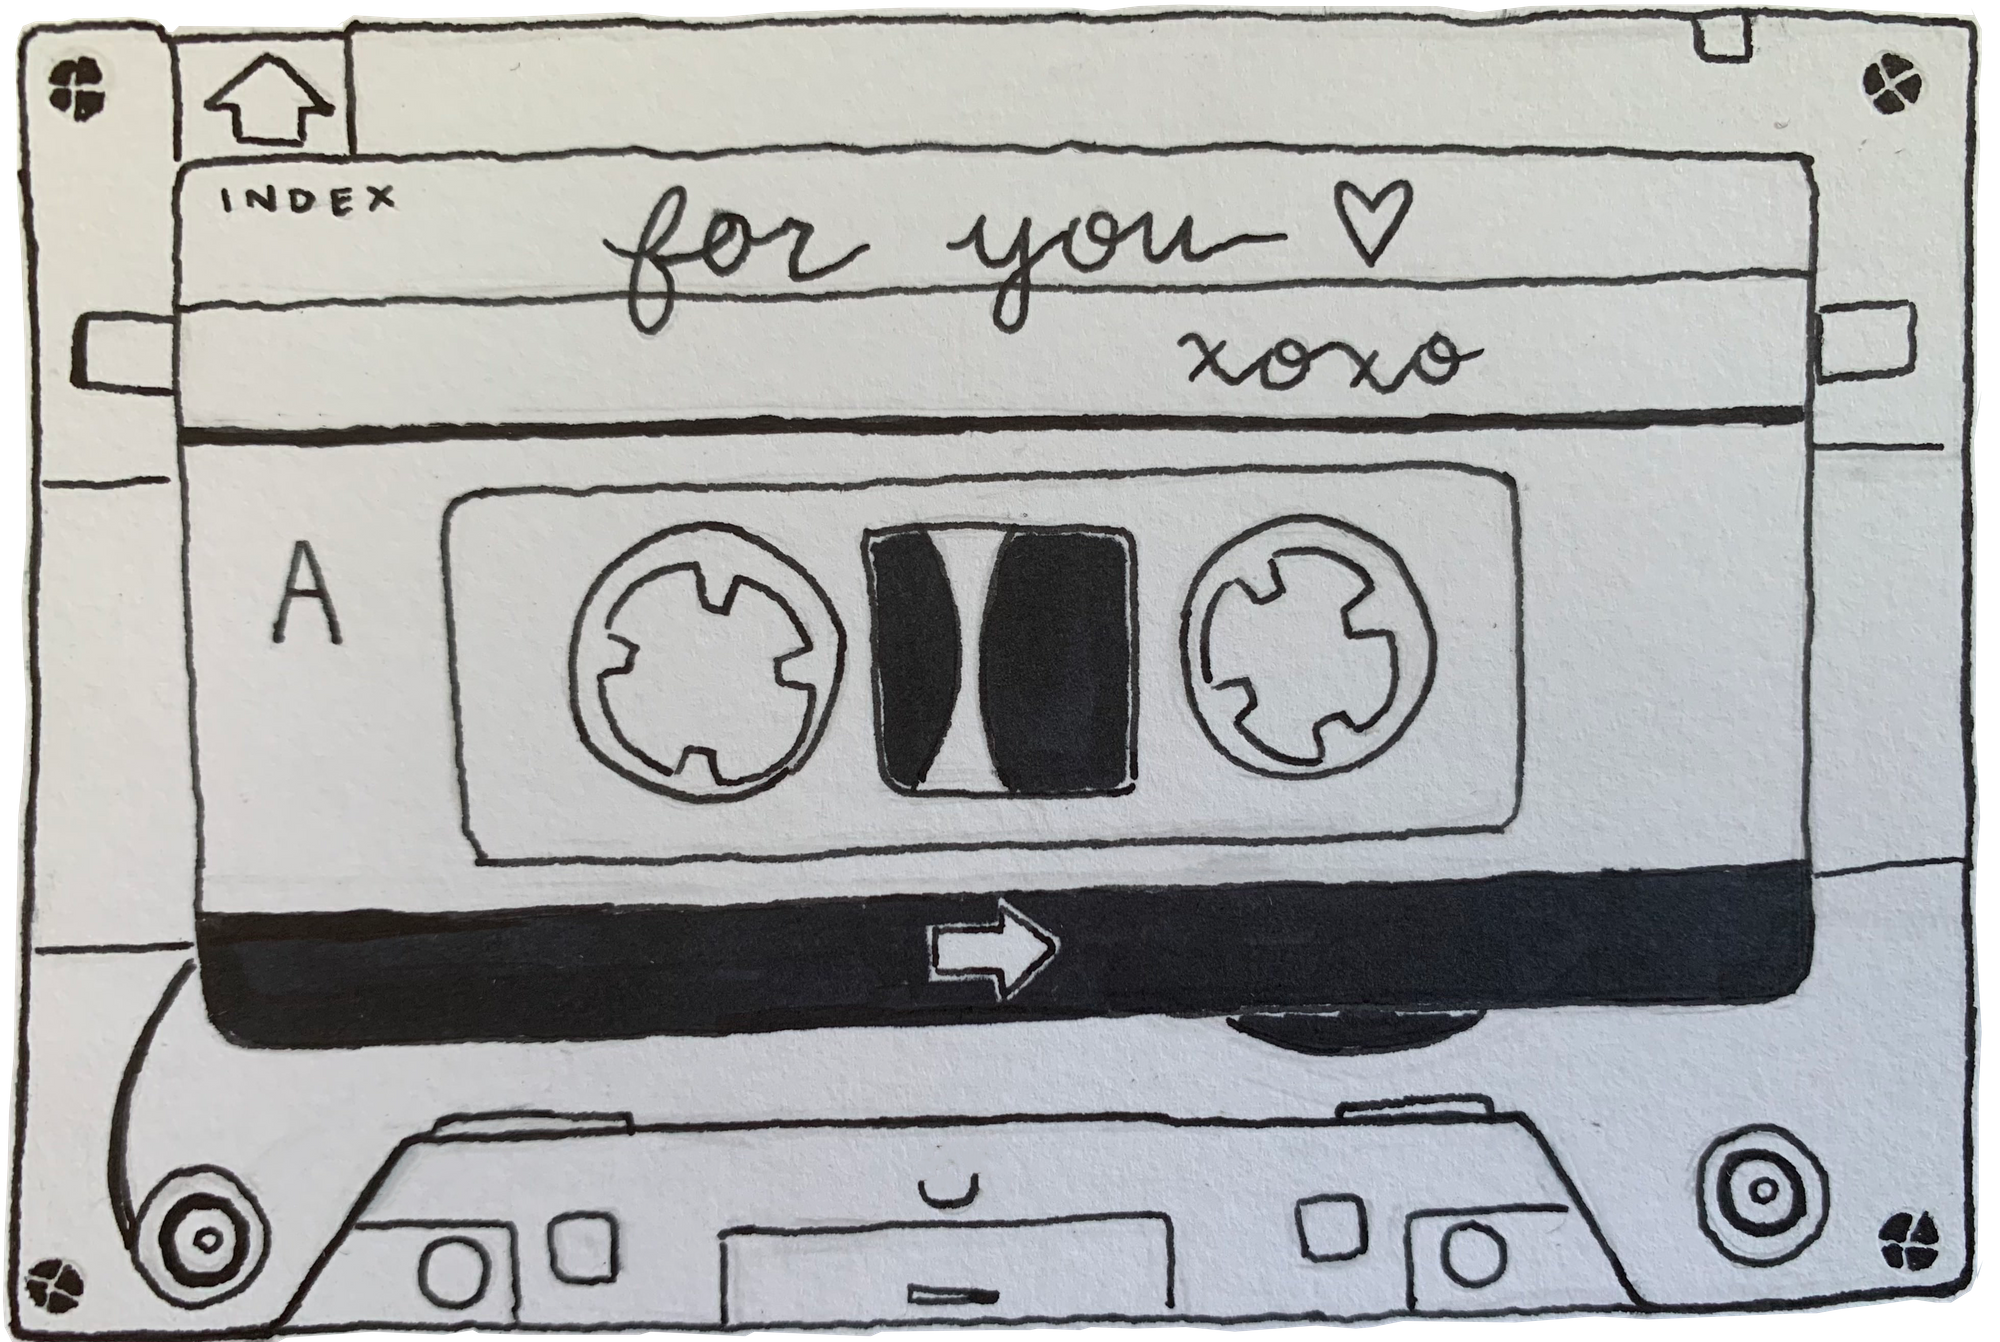 INDEX
for you ♡
xoxo
A